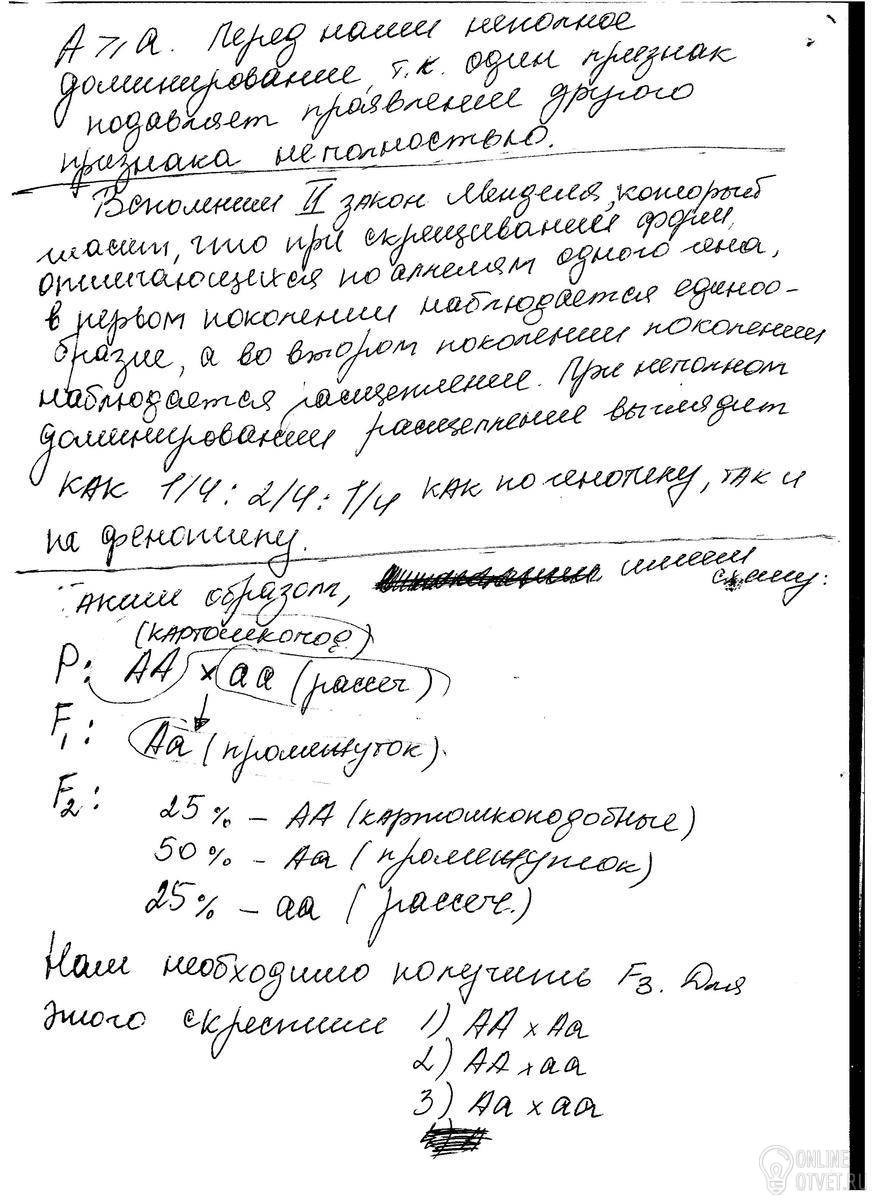 A ⩾ a. Перед нами неполное
доминирование, т.к. один признак
подавляет проявление другого
признака неполностью.
Вспомним II закон Менделя, который
гласит, что при скрещивании форм,
отличающихся по аллелям одного гена,
в первом поколении наблюдается единоо-
бразие, а во втором поколении поколении
наблюдается расщепление. При неполном
доминировании расщепление выглядит
как 1/4 : 2/4 : 1/4 как по генотипу, так и
по фенотипу.
Таким образом, имеем
схему:
(картошкопод.)
P: AA x aa (рассеч)
F1: Aa (промежуток).
F2: 25% – AA (картошкоподобные)
50% – Aa (промежуток)
25% – aa (рассеч.)
Нам необходимо получить F3. Для
этого скрестим 1) AA x Aa
2) AA x aa
3) Aa x aa
ONLINE
OTVET.RU